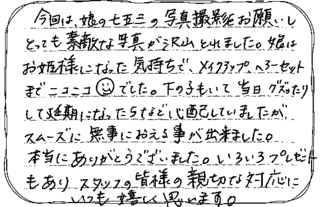 今回は、娘の七五三の写真撮影をお願いし
とっても素敵な写真が沢山とれました。娘は
お姫様になった気持ちで、メイクアップ、ヘアーセット
までニコニコ☺でした。下の子もいて当日グズったり
して延期になったらなど心配していましたが、
スムーズに無事におえる事が出来ました。
本当にありがとうございました。いろいろプレゼント
もあり、スタッフの皆様の親切な対応に
いつも嬉しく思います。